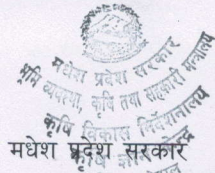 मधेश प्रदेश सरकार
भूमि व्यवस्था, कृषि तथा सहकारी मन्त्रालय
कृषि विकास निर्देशनालय
मधेश प्रदेश सरकार
कृषि ज्ञान केन्द्र